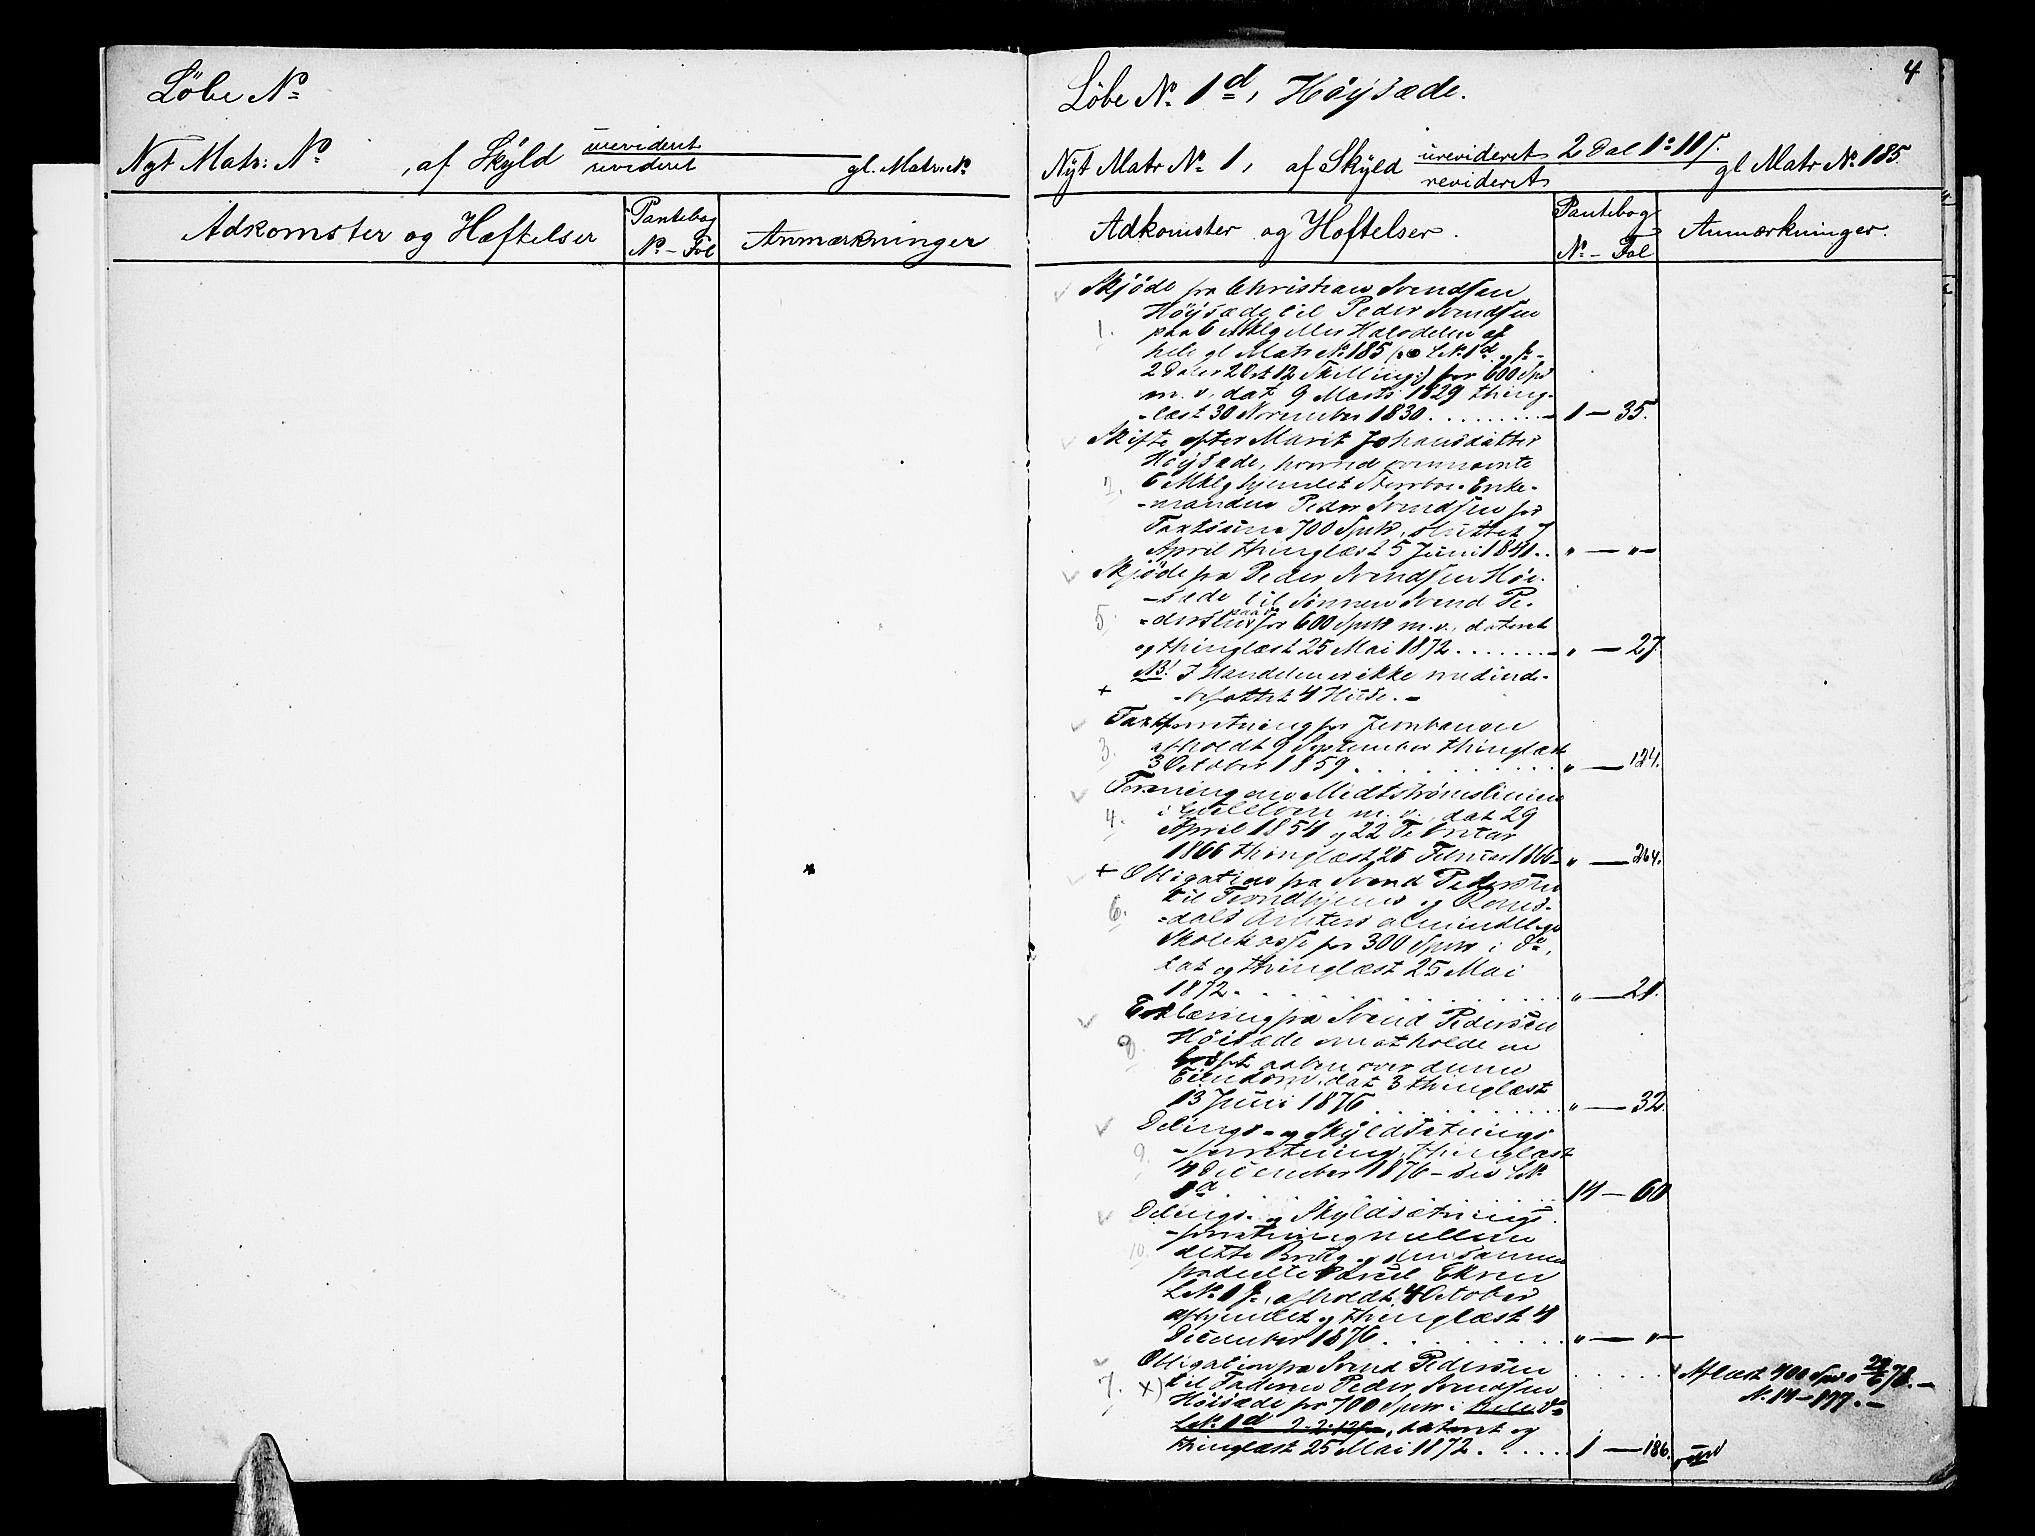 Löbe No
Nyt Matr: No , af Skyld urevideret
revideret gl. Matr. No
Adkomster og Hæftelser
Pantebog
No – Fol
Anmærkninger
4
Löbe No. 1d, Höysæde.
Nyt Matr No 1, af Skyld urevideret 2 Dal 1 o: 11 s.
revideret gl Matr No. 185.
Adkomster og Heftelser.
Pantebog
No – Fol
Anmærkninger.
Skjöde fra Christian Svendsen
Höysæde til Peder Svendsen
1. paa 6 Mklg eller Halvdelen af
hele gl Matr No 185 L.No. 1d og
2 Daler 2 Ort 12 Skilling:) for 600 Spd
m. v, dat 9 Marts 1829 thing-
-læst 30 November 1830 . . . . 1 – 35.
Skifte efter Marit Johansdatter
Höysæde, hvorved ovennævnte
2. 6 Mklg hjemlet Enke-
-manden Peder Svendsen for
Taxtsum 700 Spdr, sluttet 7
April thinglæst 5 Juni 1841 . . „ – „ –
Skjöde fra Peder Svendsen Höi-
-sæde til Sönnen Svend Pe-
5. -dersen for 600 Spdr m. v., dateret
og thinglæst 25 Mai 1872 . . . . „ – 27
NB! I Handelen er ikke medind-
+ -befattet 4 Huse. –
Taxtforretning for Jernbanen
3. afholdt 9 September thinglæst
3 October 1859 . . . . „ – 124.
Forening om Midtströmslinien
4. i m. v., dat 29
April 1854 og 22 Februar
1866 thinglæst 26 Februar 1866 „ – 264.
+ Obligation fra Svend Pedersen
til Trondhjems og Roms-
6. -dals Amters almindelige
Skolekasse for 300 Spdr i Do,
dat og thinglæst 25 Mai
1872 . . . . „ – 21.
Erklæring fra Svend Pedersen
8. Höisæde om at holde en
aaben over denne
Eiendom, dat 3 thinglæst
13 Juni 1876 . . . . „ – 32
Delings- og Skyldsætnings
9. -forretning, thinglæst
4 December 1876 – LNo
1a . . . . 14 – 60
Delings- og Skyldsætnings
-forretning mellem
10. dette Brug og den samme
fradeelte Parcel Ekren
LNo 1 f, afholdt 4 October
afhjemlet og thinglæst 4
December 1876 . . . . „ – „ –
Obligation fra Svend Pedersen
7. x) til Faderen Peder Svendsen
Höisæde for 700 Spdr i hele Do
LNo 1d 2-2-12 s, dateret og
thinglæst 25 Mai 1872 . . . . 1 – 186.
Aflæst 400 Spd 24/6 78. –
N. 14 – 177. –